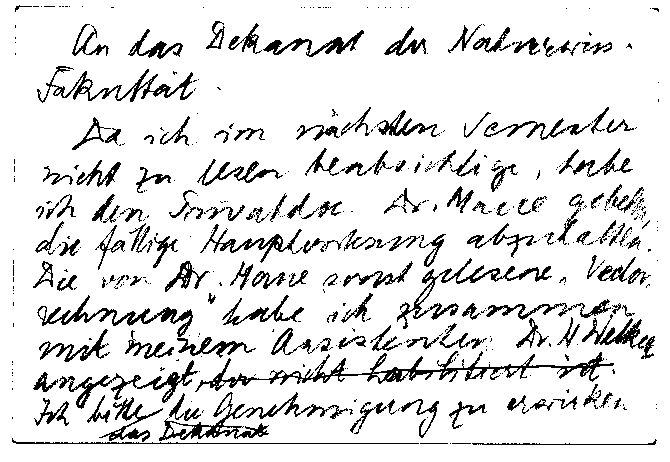 An das Dekanat der Naturwiss.
Fakultät.
Da ich im nächsten Semester
nicht zu lesen beabsichtige, habe
ich den Privatdoc. Dr. Maue gebeten,
die fällige Hauptvorlesung abzuhalten.
Die von Dr. Maue sonst gelesene „Vektor-
rechnung" habe ich zusammen
mit meinem Assistenten Dr. H Welker
angezeigt, der nicht habilitiert ist.
Ich bitte die Genehmigung zu erwirken
das Dekanat